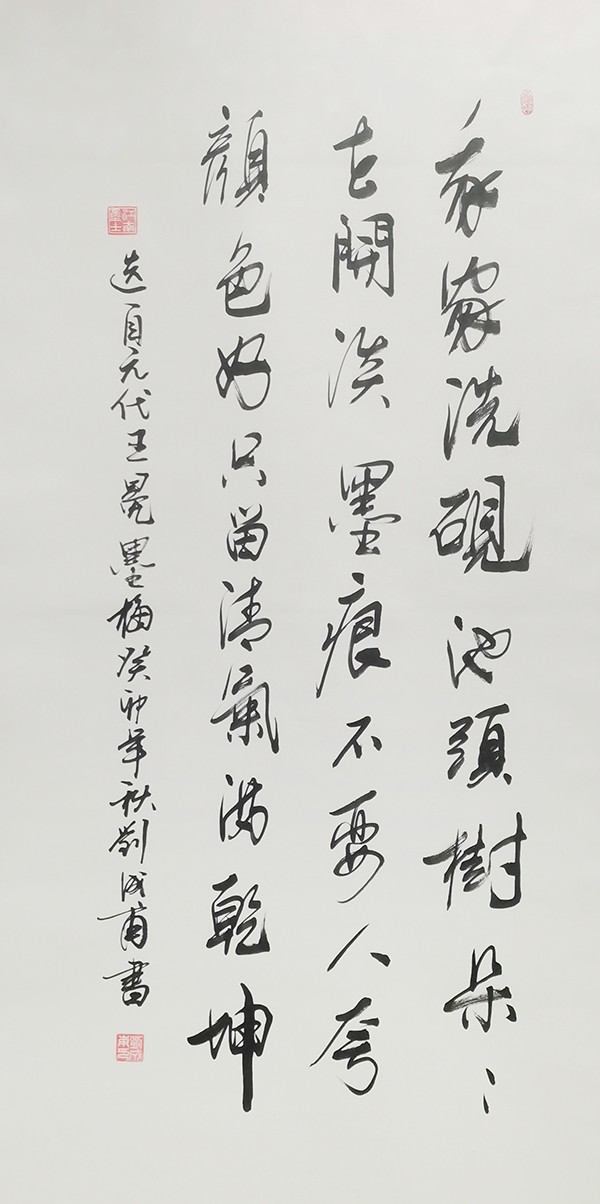 我家洗硯池頭樹朵〻
花開淡墨痕不要人夸
顏色好只留清氣滿乾坤
選自元代王冕墨梅癸卯年秋劉成甫書